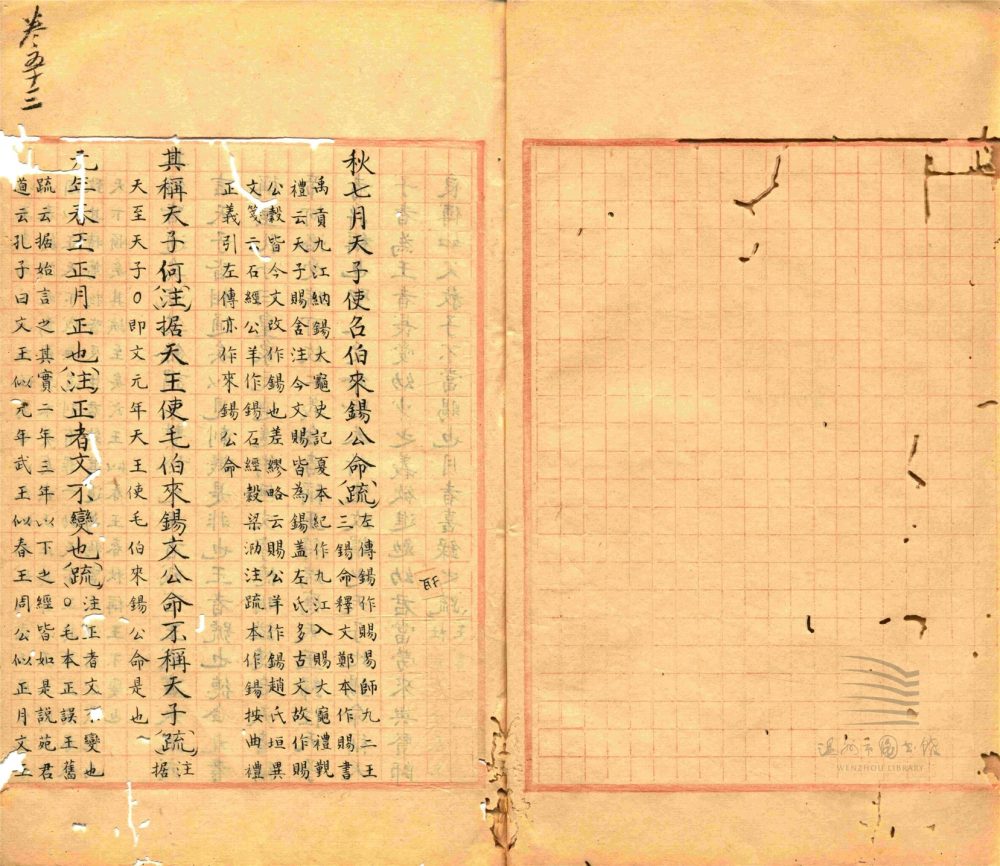 卷五十三
秋七月天子使召伯來錫公命(疏)左傳錫作賜易師九二王
三錫命釋文鄭本作賜書
禹貢九江納錫大龜史記夏本紀作九江入賜大龜禮覲
禮云天子賜舍注今文賜皆為錫蓋左氏多古文故作賜
公穀皆今文故作錫也差繆略云賜公羊作錫趙氏坦異
文箋云石經公羊作錫石經穀梁泐注疏本作錫按曲禮
正義引左傳亦作來錫公命
其稱天子何(注)据天王使毛伯來錫文公命不稱天子(疏)注
据
天至天子○即文元年天王使毛伯來錫公命是也
元年春王正月正也(注)正者文不變也(疏)注正者文不變也
○毛本正誤王舊
疏云据始言之其實二年三年以下之經皆如是說苑君
道云孔子曰文王似元年武王似春王周公似正月文王
溫州市圖書館
WENZHOU LIBRARY